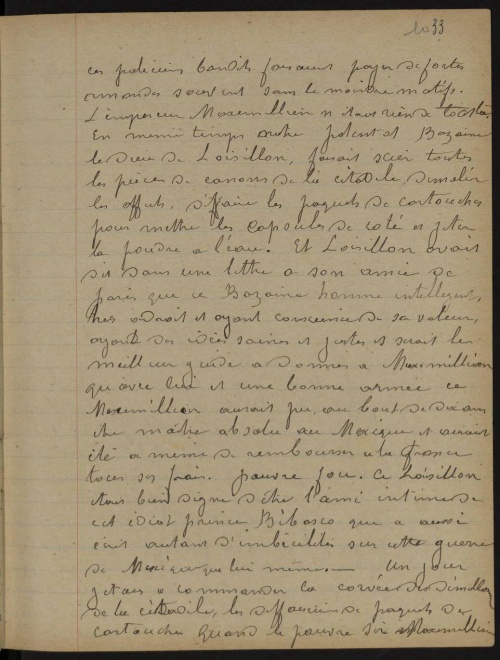 33
ces policiers bandits faisaient payer de fortes
amandes souvent sans le moindre motifs.
L'empereur Maxemillien n était rien de tout ça
En meme temps notre potentat Bazaine
le dieu de Loisillon, faisait scier toutes
les pièces de canons de la citadele, demolir
les affuts, défaire les paquets de cartouches
pour mettre les capsules de coté et jeter
la poudre a l'eau. Et Loisillon avait
dit dans une lettre a son amie de
paris que ce Bazaine homme intelligent,
tres adroit et ayant conscience de sa valeur,
ayant des idées saines et justes serait le
meilleur guide a donner a Maxemillien
qu'avec lui et une bonne armée ce
Maxemillien aurait pu, au bout de dix ans
etre maitre absolu au Mexique et aurait
été a meme de rembourser a la France
tous ses frais. pauvre fou. Ce Loisillon
etais bien digne d'être l'ami intime de
cet idiot prince Bibesco que a aussi
écrit autant d'imbécilités sur cette guerre
de Mexique que lui même. — Un jour
j'etais a commander la corvée des démolisseurs
de la citadele, les defaiseurs de paquets de
cartouches quand le pauvre sire Maxemillien